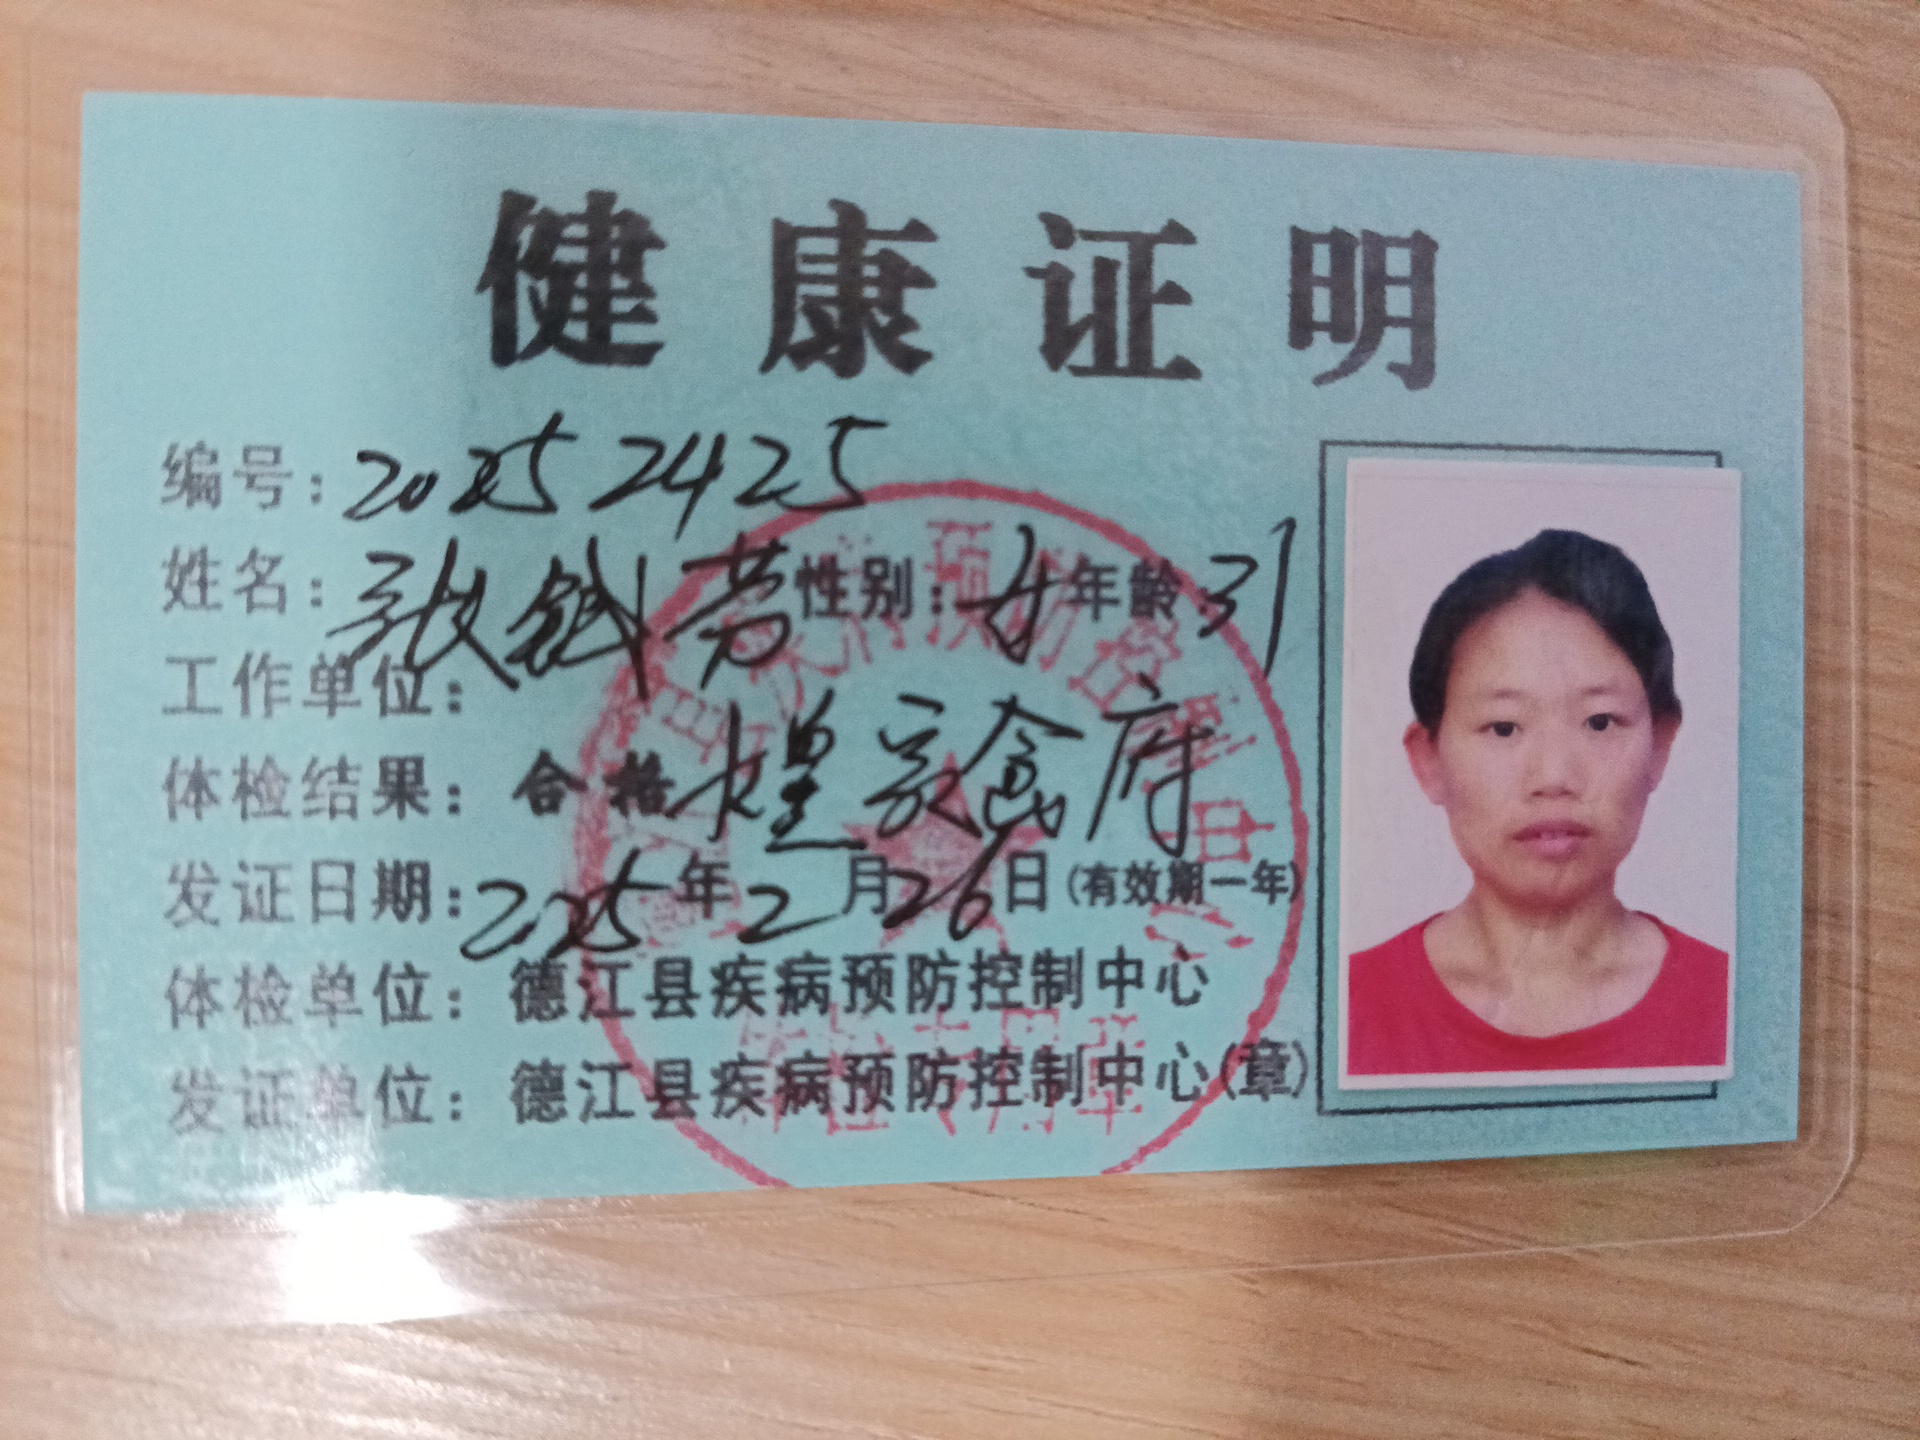 健康证明
编号: 20252425
姓名: 张 芳 性别: 女 年龄: 31
工作单位: 煌家食府
体检结果: 合格
发证日期: 2025年2月26日(有效期一年)
体检单位: 德江县疾病预防控制中心
发证单位: 德江县疾病预防控制中心(章)